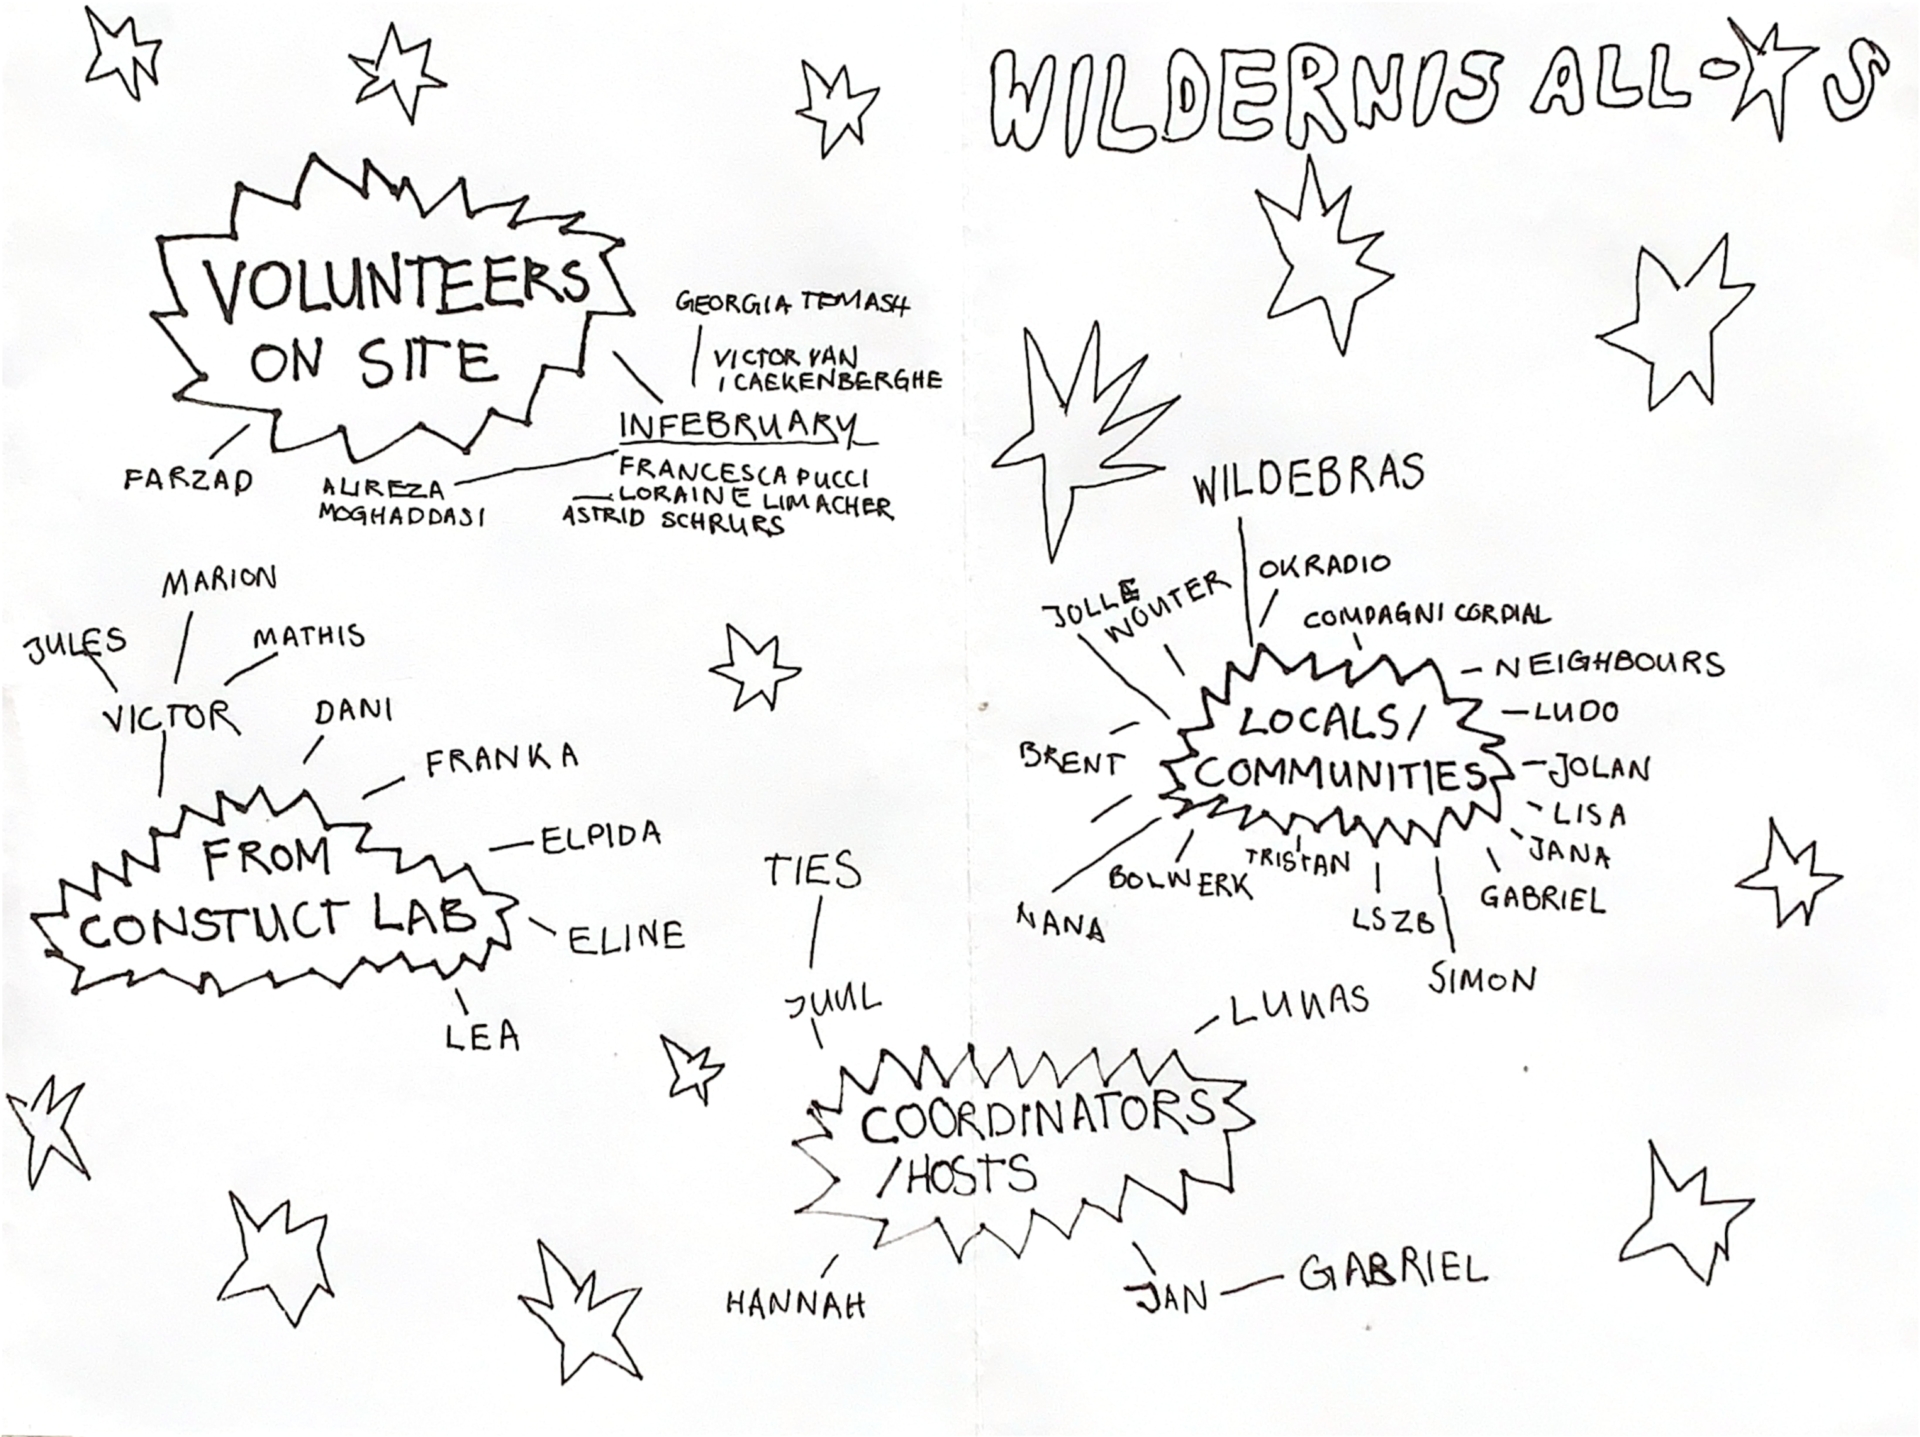 WILDERNIS ALL-☆S
VOLUNTEERS
ON SITE
GEORGIA TEMASH
VICTOR VAN
CAEKENBERGHE
IN FEBRUARY
FRANCESCA PUCCI
LORAINE LIMACHER
ASTRID SCHRURS
ALIREZA
MOGHADDASI
FARZAD
MARION
JULES
MATHIS
VICTOR
DANI
FRANKA
ELPIDA
FROM
CONSTUCT LAB
ELINE
LEA
WILDEBRAS
OKRADIO
JOLLE
WOUTER
COMPAGNI CORDIAL
NEIGHBOURS
LUDO
LOCALS/
COMMUNITIES
BRENT
JOLAN
LISA
JANA
GABRIEL
TRISTAN
BOLWERK
LSZB
NANA
SIMON
TIES
JUUL
LUKAS
COORDINATORS
/HOSTS
HANNAH
JAN
GABRIEL